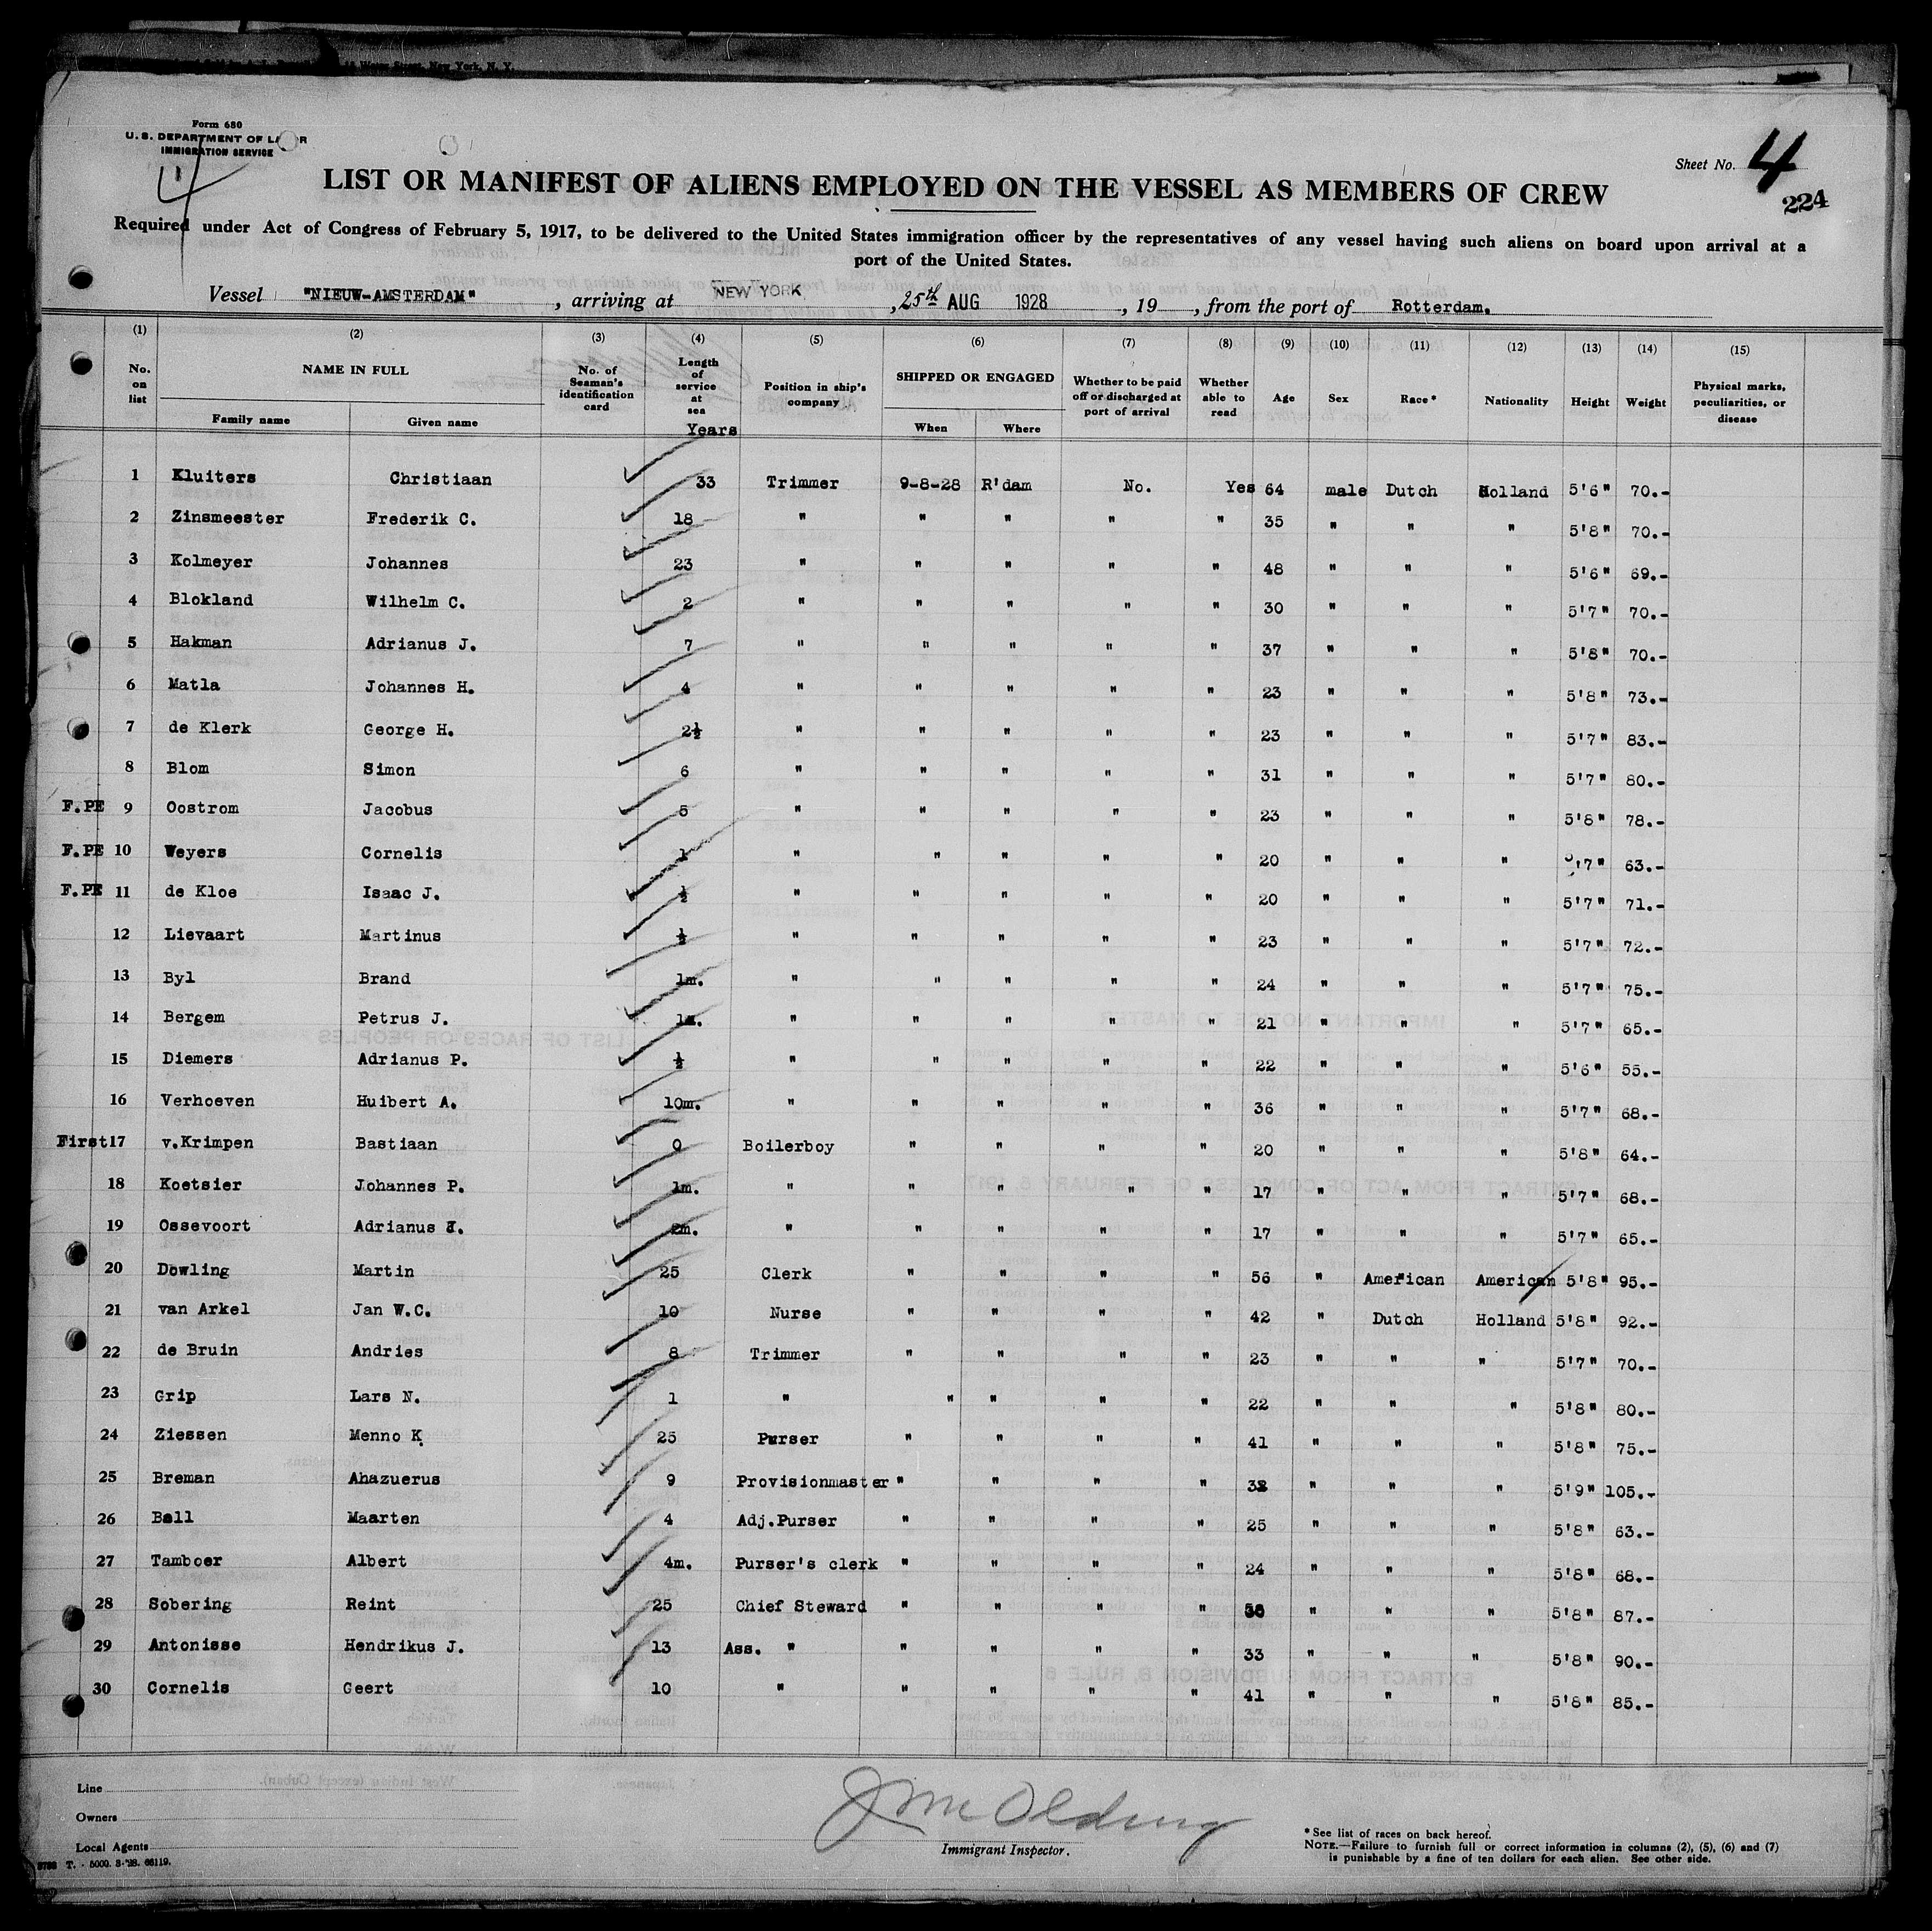 Form 680
U. S. DEPARTMENT OF LABOR
IMMIGRATION SERVICE
Sheet No. 4
224
LIST OR MANIFEST OF ALIENS EMPLOYED ON THE VESSEL AS MEMBERS OF CREW
Required under Act of Congress of February 5, 1917, to be delivered to the United States immigration officer by the representatives of any vessel having such aliens on board upon arrival at a
port of the United States.
Vessel "NIEUW-AMSTERDAM", arriving at NEW YORK, 25th AUG 1928, 19 , from the port of Rotterdam.
(1) (2) (3) (4) (5) (6) (7) (8) (9) (10) (11) (12) (13) (14) (15)
No. on list NAME IN FULL Family name Given name No. of Seaman's identification card Length of service at sea Years Position in ship's company SHIPPED OR ENGAGED When Where Whether to be paid off or discharged at port of arrival Whether able to read Age Sex Race* Nationality Height Weight Physical marks, peculiarities, or disease
1 Kluiters Christiaan 33 Trimmer 9-8-28 R'dam No. Yes 64 male Dutch Holland 5'6" 70.-
2 Zinsmeester Frederik C. 18 " " " " " 35 " " " 5'8" 70.-
3 Kolmeyer Johannes 23 " " " " " 48 " " " 5'6" 69.-
4 Blokland Wilhelm C. 2 " " " " " 30 " " " 5'7" 70.-
5 Hakman Adrianus J. 7 " " " " " 37 " " " 5'8" 70.-
6 Matla Johannes H. 4 " " " " " 23 " " " 5'8" 73.-
7 de Klerk George H. 2½ " " " " " 23 " " " 5'7" 83.-
8 Blom Simon 6 " " " " " 31 " " " 5'7" 80.-
F.PE 9 Oostrom Jacobus 5 " " " " " 23 " " " 5'8" 78.-
F.PE 10 Weyers Cornelis 1 " " " " " 20 " " " 5'7" 63.-
F.PE 11 de Kloe Isaac J. ½ " " " " " 20 " " " 5'7" 71.-
12 Lievaart Martinus ½ " " " " " 23 " " " 5'7" 72.-
13 Byl Brand 1m. " " " " " 24 " " " 5'7" 75.-
14 Bergem Petrus J. 1m. " " " " " 21 " " " 5'7" 65.-
15 Diemers Adrianus P. ½ " " " " " 22 " " " 5'6" 55.-
16 Verhoeven Huibert A. 10m. " " " " " 36 " " " 5'7" 68.-
First 17 v.Krimpen Bastiaan 0 Boilerboy " " " " 20 " " " 5'8" 64.-
18 Koetsier Johannes P. 1m. " " " " " 17 " " " 5'7" 68.-
19 Ossevoort Adrianus J. 2m. " " " " " 17 " " " 5'7" 65.-
20 Dowling Martin 25 Clerk " " " " 56 " American American 5'8" 95.-
21 van Arkel Jan W.C. 10 Nurse " " " " 42 " Dutch Holland 5'8" 92.-
22 de Bruin Andries 8 Trimmer " " " " 23 " " " 5'7" 70.-
23 Grip Lars N. 1 " " " " " 22 " " " 5'8" 80.-
24 Ziessen Menno K. 25 Purser " " " " 41 " " " 5'8" 75.-
25 Breman Ahazuerus 9 Provisionmaster " " " " " " " 5'9" 105.-
26 Ball Maarten 4 Adj.Purser " " " " 25 " " " 5'8" 63.-
27 Tamboer Albert 4m. Purser's clerk " " " " 24 " " " 5'8" 68.-
28 Sobering Reint 25 Chief Steward " " " " " " " 5'8" 87.-
29 Antonisse Hendrikus J. 13 Ass. " " " " " 33 " " " 5'8" 90.-
30 Cornelis Geert 10 " " " " " 41 " " " 5'8" 85.-
Line
Owners
Local Agents
Immigrant Inspector.
* See list of races on back hereof.
NOTE.—Failure to furnish full or correct information in columns (2), (5), (6) and (7)
is punishable by a fine of ten dollars for each alien. See other side.